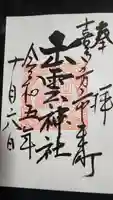 奉拝
喜多方市本町
出雲神社
令和五年
十月六日